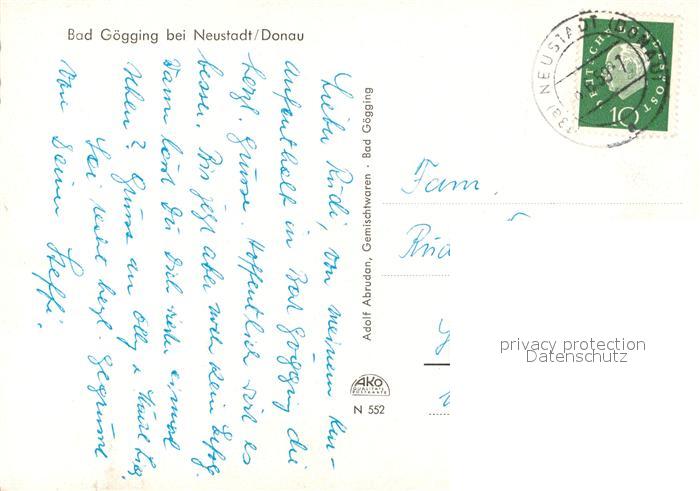 Bad Gögging bei Neustadt/Donau
Lieber Rudi, von meinem Kur-
aufenthalt in Bad Gögging die
herzl. Grüsse. Hoffentlich wird es
besser. Bis jetzt aber noch kein Erfolg.
Wann lässt Du Dich mehr einmal
sehen? Grüsse an Olly u.
Sei recht herzl. gegrüsst
von Deiner Steffi.
Adolf Abrudan, Gemischtwaren · Bad Gögging
AKO
QUALITÄTS
POSTKARTE
N 552
(13a) NEUSTADT (DONAU)
DEUTSCHE BUNDESPOST
10
Fam.
Rud
privacy protection
Datenschutz